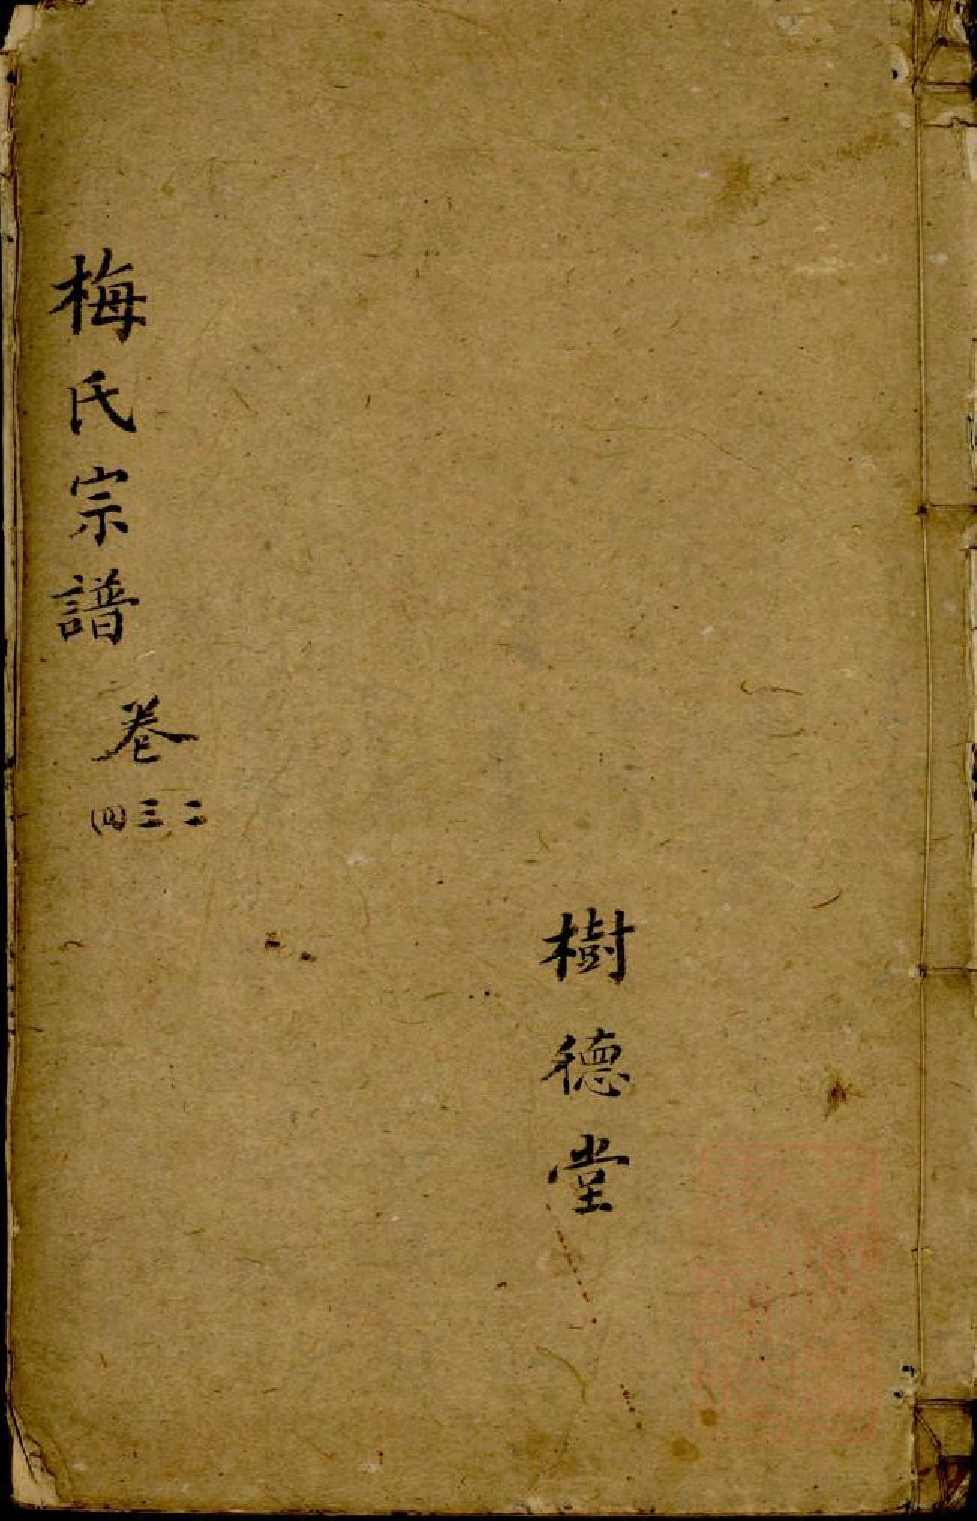 梅氏宗譜
卷
二三四
樹德堂